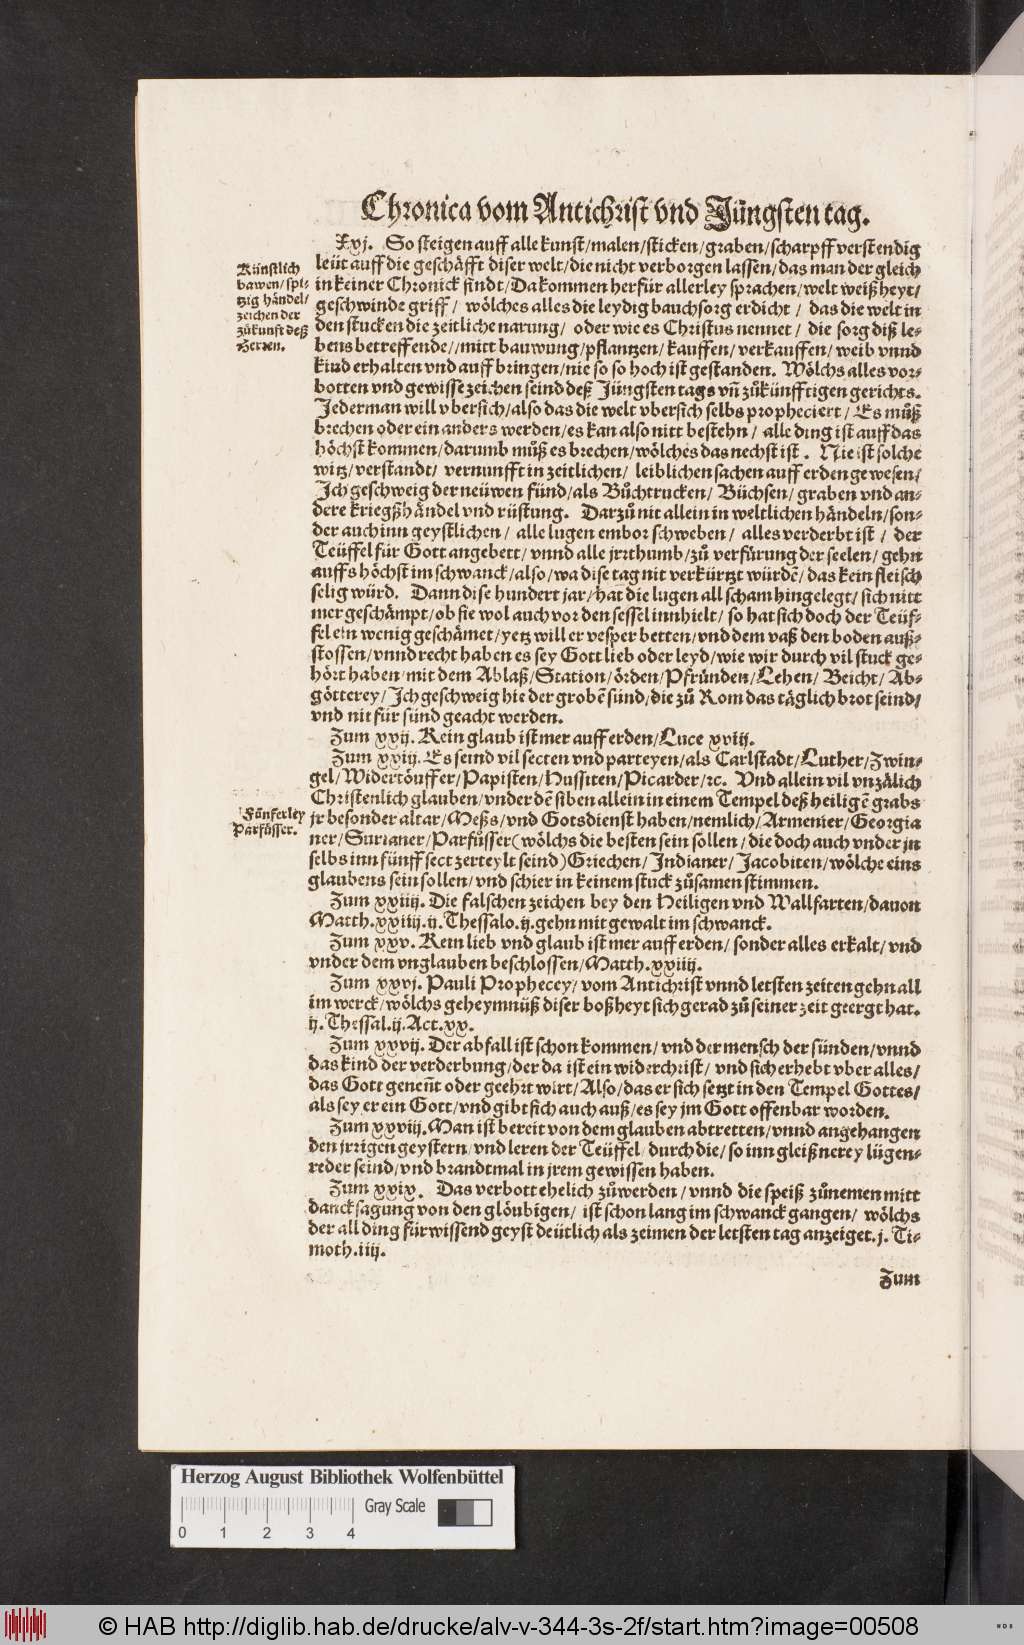 Chronica vom Antichrist vnd Jüngsten tag.
Xxj. So steigen auff alle kunst/malen/sticken/graben/scharpff verstendig
leüt auff die geschäfft diser welt/die nicht verborgen lassen/das man der gleich
in keiner Chronick findt/Da kommen herfür allerley sprachen/welt weißheyt/
geschwinde griff/ wölches alles die leydig bauchsorg erdicht/ das die welt in
den stucken die zeitliche narung/ oder wie es Christus nennet/ die sorg diß le-
bens betreffende//mitt bauwung/pflantzen/kauffen/verkauffen/weib vnnd
kind erhalten vnd auff bringen/nie so so hoch ist gestanden. Wölchs alles vor-
botten vnd gewisse zeichen seind deß Jüngsten tags vñ zůkünfftigen gerichts.
Jederman will vbersich/also das die welt vbersich selbs propheciert/Es můß
brechen oder ein anders werden/es kan also nitt bestehn/ alle ding ist auff das
höchst kommen/darumb můß es brechen/wölches das nechst ist. Nie ist solche
witz/verstandt/ vernunfft in zeitlichen/ leiblichen sachen auff erden gewesen/
Ich geschweig der neüwen fünd/als Bůchtrucken/ Büchsen/ graben vnd an-
dere kriegßhändel vnd rüstung. Darzů nit allein in weltlichen händeln/son-
der auch inn geystlichen/ alle lugen embor schweben/ alles verderbt ist/ der
Teüffel für Gott angebett/ vnnd alle jrrthumb/zů verfürung der seelen/ gehn
auffs höchst im schwanck/also/wa dise tag nit verkürtzt würdē/das kein fleisch
selig würd. Dann dise hundert jar/hat die lugen all scham hingelegt/sich nitt
mer geschämpt/ob sie wol auch vor den sessel innhielt/ so hat sich doch der Teüf-
fel ein wenig geschämet/yetz will er vesper betten/vnd dem vaß den boden auß-
stossen/vnnd recht haben es sey Gott lieb oder leyd/wie wir durch vil stuck ge-
hört haben/mit dem Ablaß/Station/örden/Pfründen/Lehen/ Beicht/ Ab-
götterey/Ich geschweig hie der grobē sünd/die zů Rom das täglich brot seind/
vnd nit für sünd geacht werden.
Zum xxij. Kein glaub ist mer auff erden/Luce xviij.
Zum xxiij. Es seind vil secten vnd parteyen/als Carlstadt/Luther/Zwin-
gel/Widertöuffer/Papisten/Hussiten/Picarder/rc. Vnd allein vil vnzälich
Christenlich glauben/vnder dē siben allein in einem Tempel deß heiligē grabs
jr besonder altar/Meßs/vnd Gotsdienst haben/nemlich/Armenier/Georgia
ner/Surianer/Parfůsser(wölchs die besten sein sollen/die doch auch vnder jn
selbs inn fünff sect zerteylt seind)Griechen/Indianer/Jacobiten/wölche eins
glaubens sein sollen/vnd schier in keinem stuck zůsamen stimmen.
Zum xxiiij. Die falschen zeichen bey den Heiligen vnd Wallfarten/dauon
Matth.xxiiij.ij.Thessalo.ij.gehn mit gewalt im schwanck.
Zum xxv. Kein lieb vnd glaub ist mer auff erden/ sonder alles erkalt/vnd
vnder dem vnglauben beschlossen/Matth.xxiiij.
Zum xxvj. Pauli Prophecey/vom Antichrist vnnd letsten zeiten gehn all
im werck/wölchs geheymnüß diser boßheyt sich gerad zů seiner zeit geergt hat.
ij.Thessal.ij.Act.xx.
Zum xxvij. Der abfall ist schon kommen/vnd der mensch der sünden/vnnd
das kind der verderbung/der da ist ein widerchrist/ vnd sich erhebt vber alles/
das Gott geneñt oder geehrt wirt/Also/das er sich setzt in den Tempel Gottes/
als sey er ein Gott/vnd gibt sich auch auß/es sey jm Gott offenbar worden.
Zum xxviij. Man ist bereit von dem glauben abtretten/vnnd angehangen
den jrrigen geystern/vnd leren der Teüffel/durch die/so inn gleißnerey lügen-
reder seind/vnd brandtmal in jrem gewissen haben.
Zum xxix. Das verbott ehelich zůwerden/vnnd die speiß zůnemen mitt
dancksagung von den glöubigen/ ist schon lang im schwanck gangen/ wölchs
der all ding fürwissend geyst deütlich als zeimen der letsten tag anzeiget.j. Ti-
moth.iiij.
Zum
Künstlich
bawen/spi-
tzig händel/
zeichen der
zůkunft deß
Herren.
Fänferley
Parfüsser.
Herzog August Bibliothek Wolfenbüttel
Gray Scale
0 1 2 3 4
© HAB http://diglib.hab.de/drucke/alv-v-344-3s-2f/start.htm?image=00508